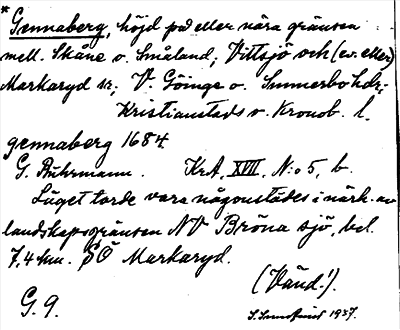 * Gennaberg, höjd på eller nära gränsen
mell. Skåne o. Småland, Vittsjö och (ev. eller)
Markaryd sn; V. Göinge o. Sunnerbo hdr;
Kristianstads o. Kronob. l.
gennaberg 1684
G. Buhrmann. KrA, XVII, N:o 5, b.
Läget torde vara någonstädes i närh. av
landskapsgränsen NV Bröna sjö, bel.
7,4 km. Ö Markaryd.
(Vänd!).
G. 9. 1937.